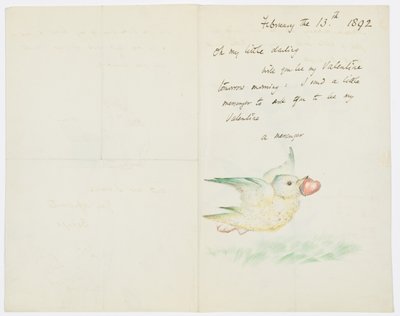 February the 13.th 1892
Oh my little darling
will you be my Valentine
tomorrow morning. I send a little
messenger to ask you to be my
Valentine
a messenger